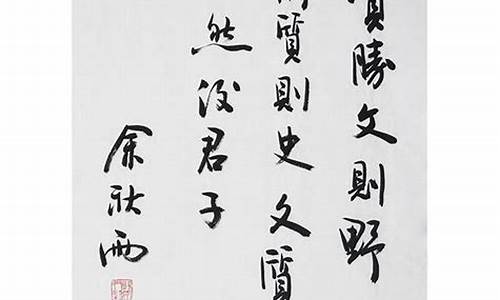 質勝文則野
質則史文質
然後君子
余秋雨